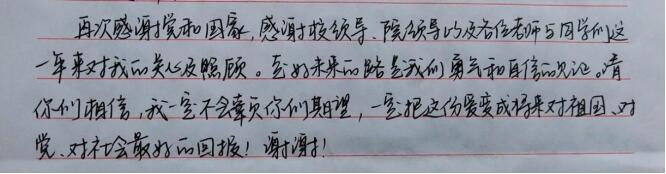 再次感谢党和国家,感谢校领导、院领导以及各位老师与同学们这
一年来对我的关心及照顾。走好未来的路是我们勇气和自信的见证。请
你们相信,我一定不会辜负你们期望,一定把这份爱变成将来对祖国、对
党、对社会最好的回报!谢谢!